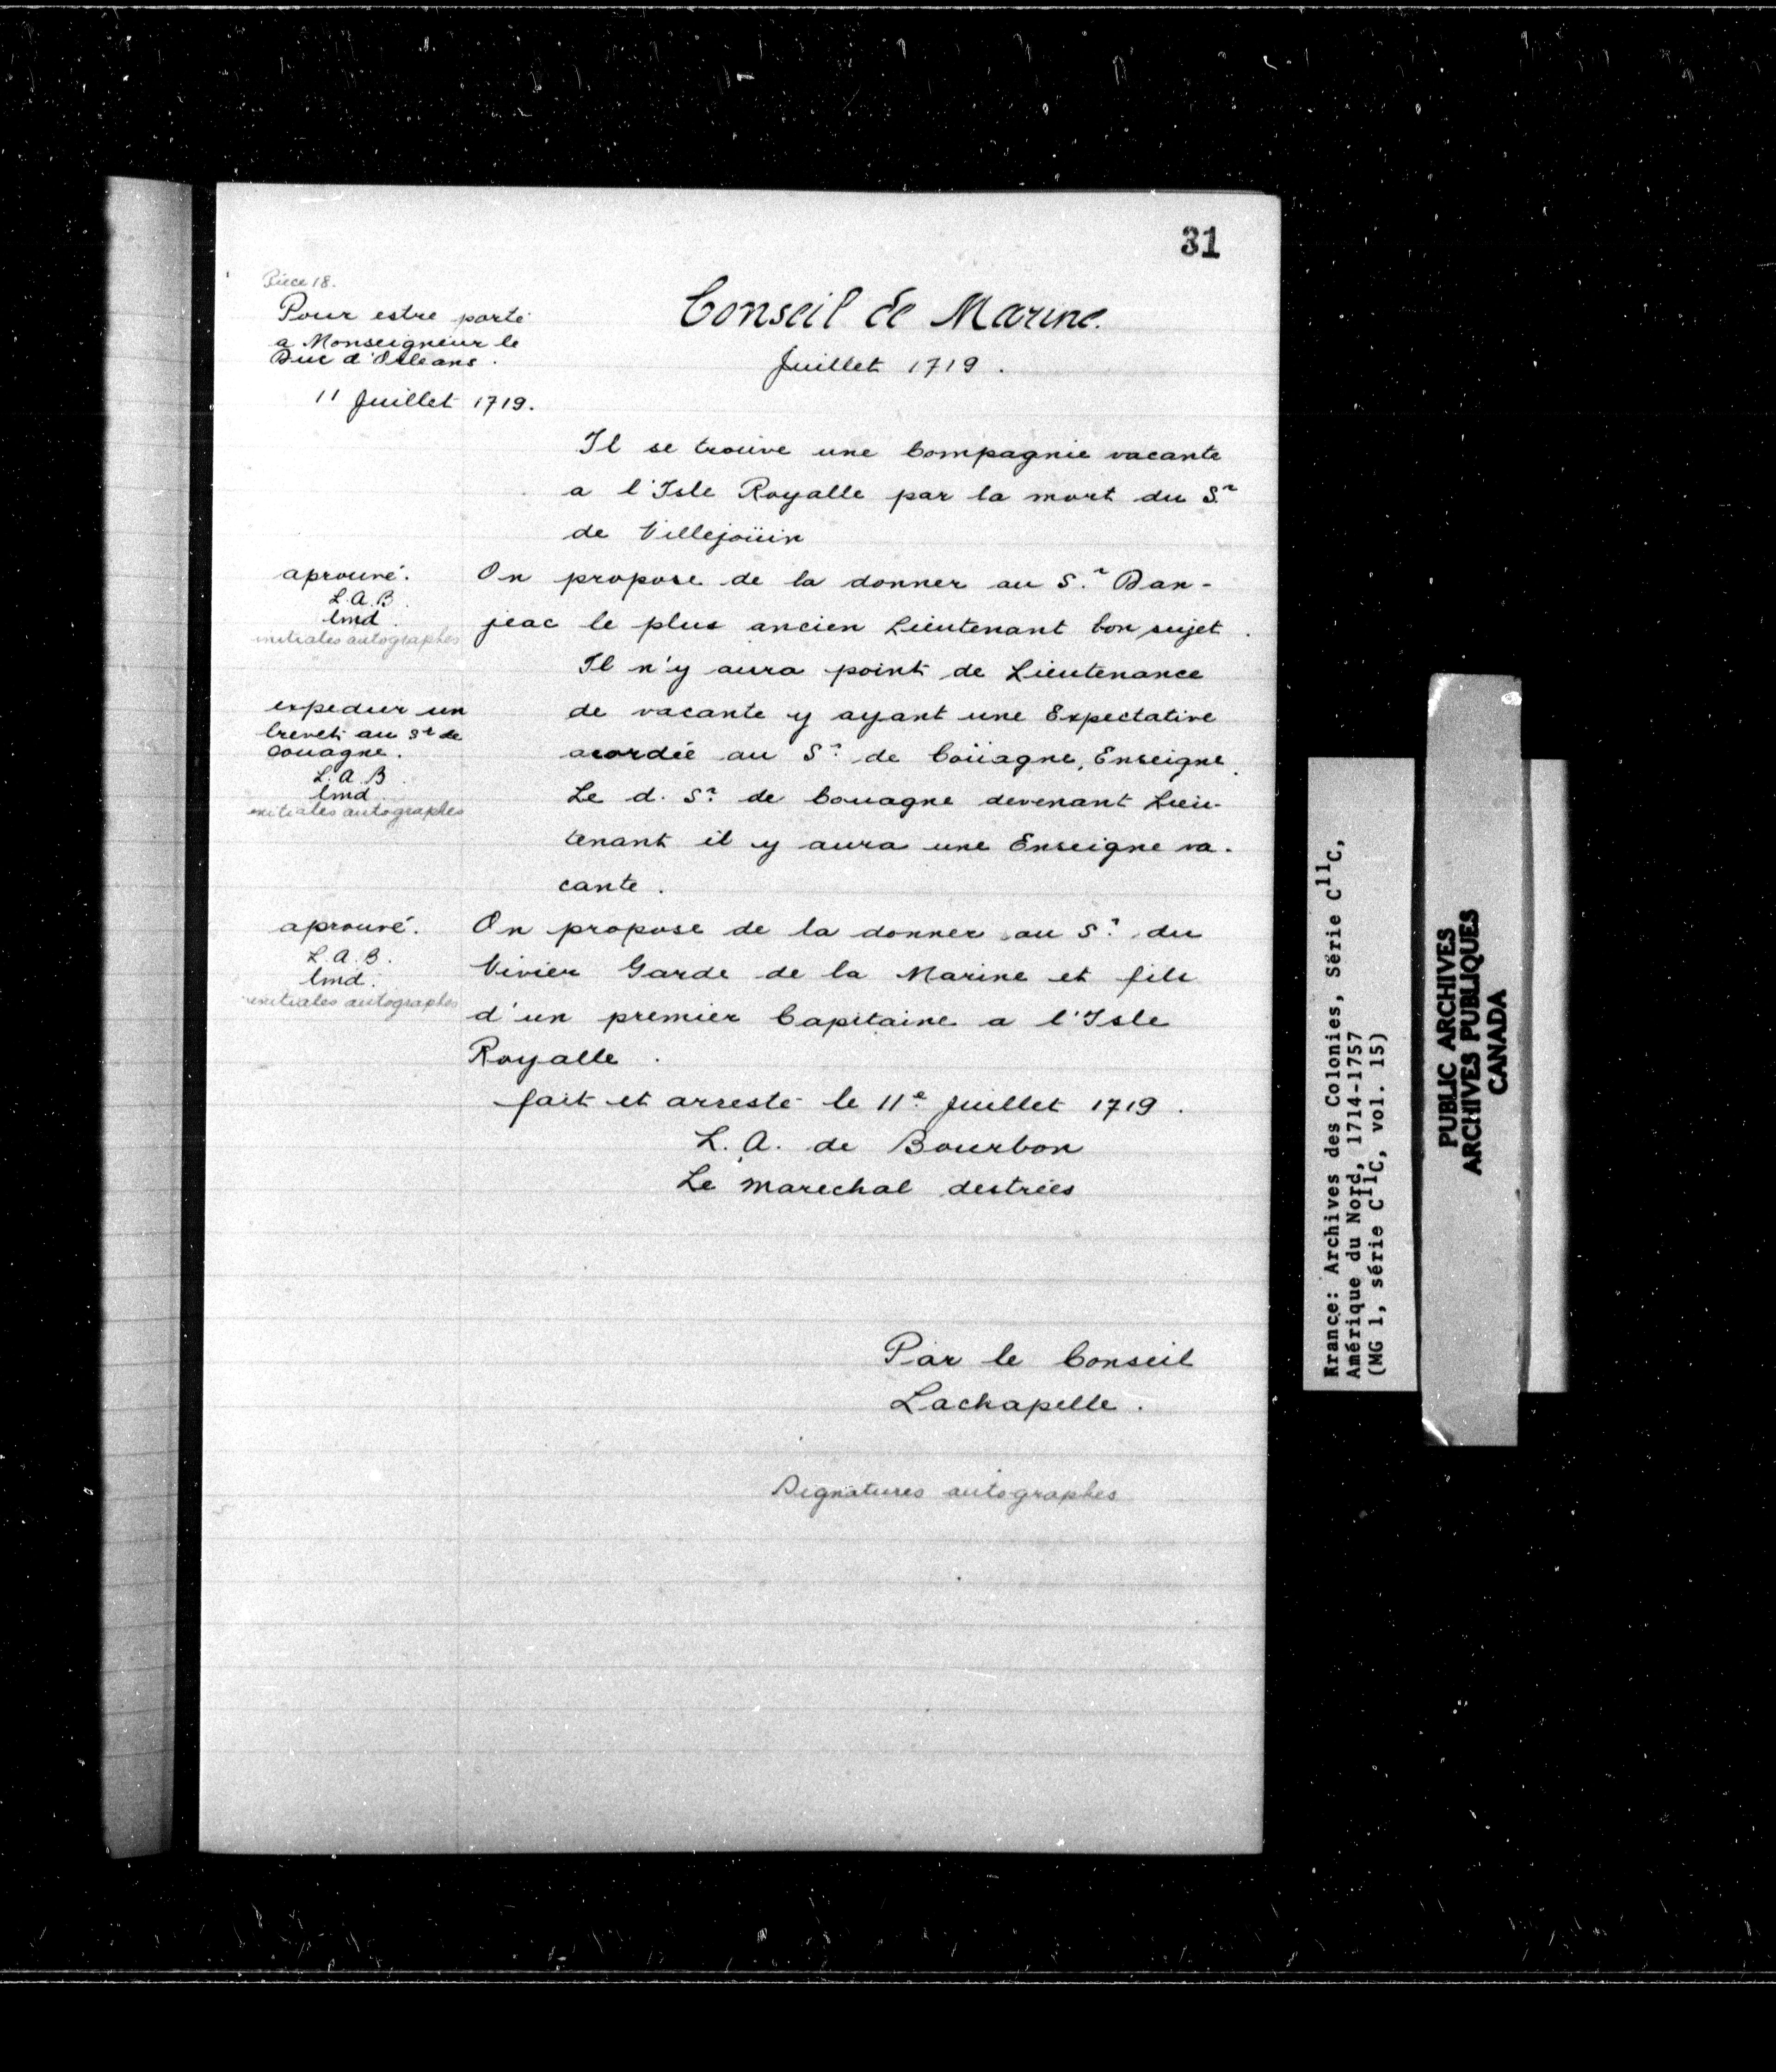 31
Pièce 18.
Pour estre porté
a Monseigneur le
Duc d'Orleans.
11 Juillet 1719.
Conseil de Marine.
Juillet 1719.
Il se trouve une Compagnie vacante
a l'Isle Royalle par la mort du S.r
de Villejoüin
aprouvé.
L.A.B.
lmd.
initiales autographes
On propose de la donner au S.r Dan-
jeac le plus ancien Lieutenant bon sujet.
Il n'y aura point de Lieutenance
de vacante y ayant une Expectative
acordée au S.r de Coüagne, Enseigne.
expedier un
brevet au Sr de
Couagne.
L.A.B.
lmd
initiales autographes
Le d. S.r de Couagne devenant Lieu-
tenant il y aura une Enseigne va-
cante.
aprouvé.
L.A.B.
lmd.
initiales autographes
On propose de la donner au S.r du
Vivier Garde de la Marine et fils
d'un premier Capitaine a l'Isle
Royalle.
fait et arresté le 11e Juillet 1719.
L. A. de Bourbon
Le marechal destrées
Par le Conseil
Lachapelle.
Signatures autographes
France: Archives des Colonies, Série C11C,
Amérique du Nord, 1714-1757
(MG 1, série C11C, vol. 15)
PUBLIC ARCHIVES
ARCHIVES PUBLIQUES
CANADA